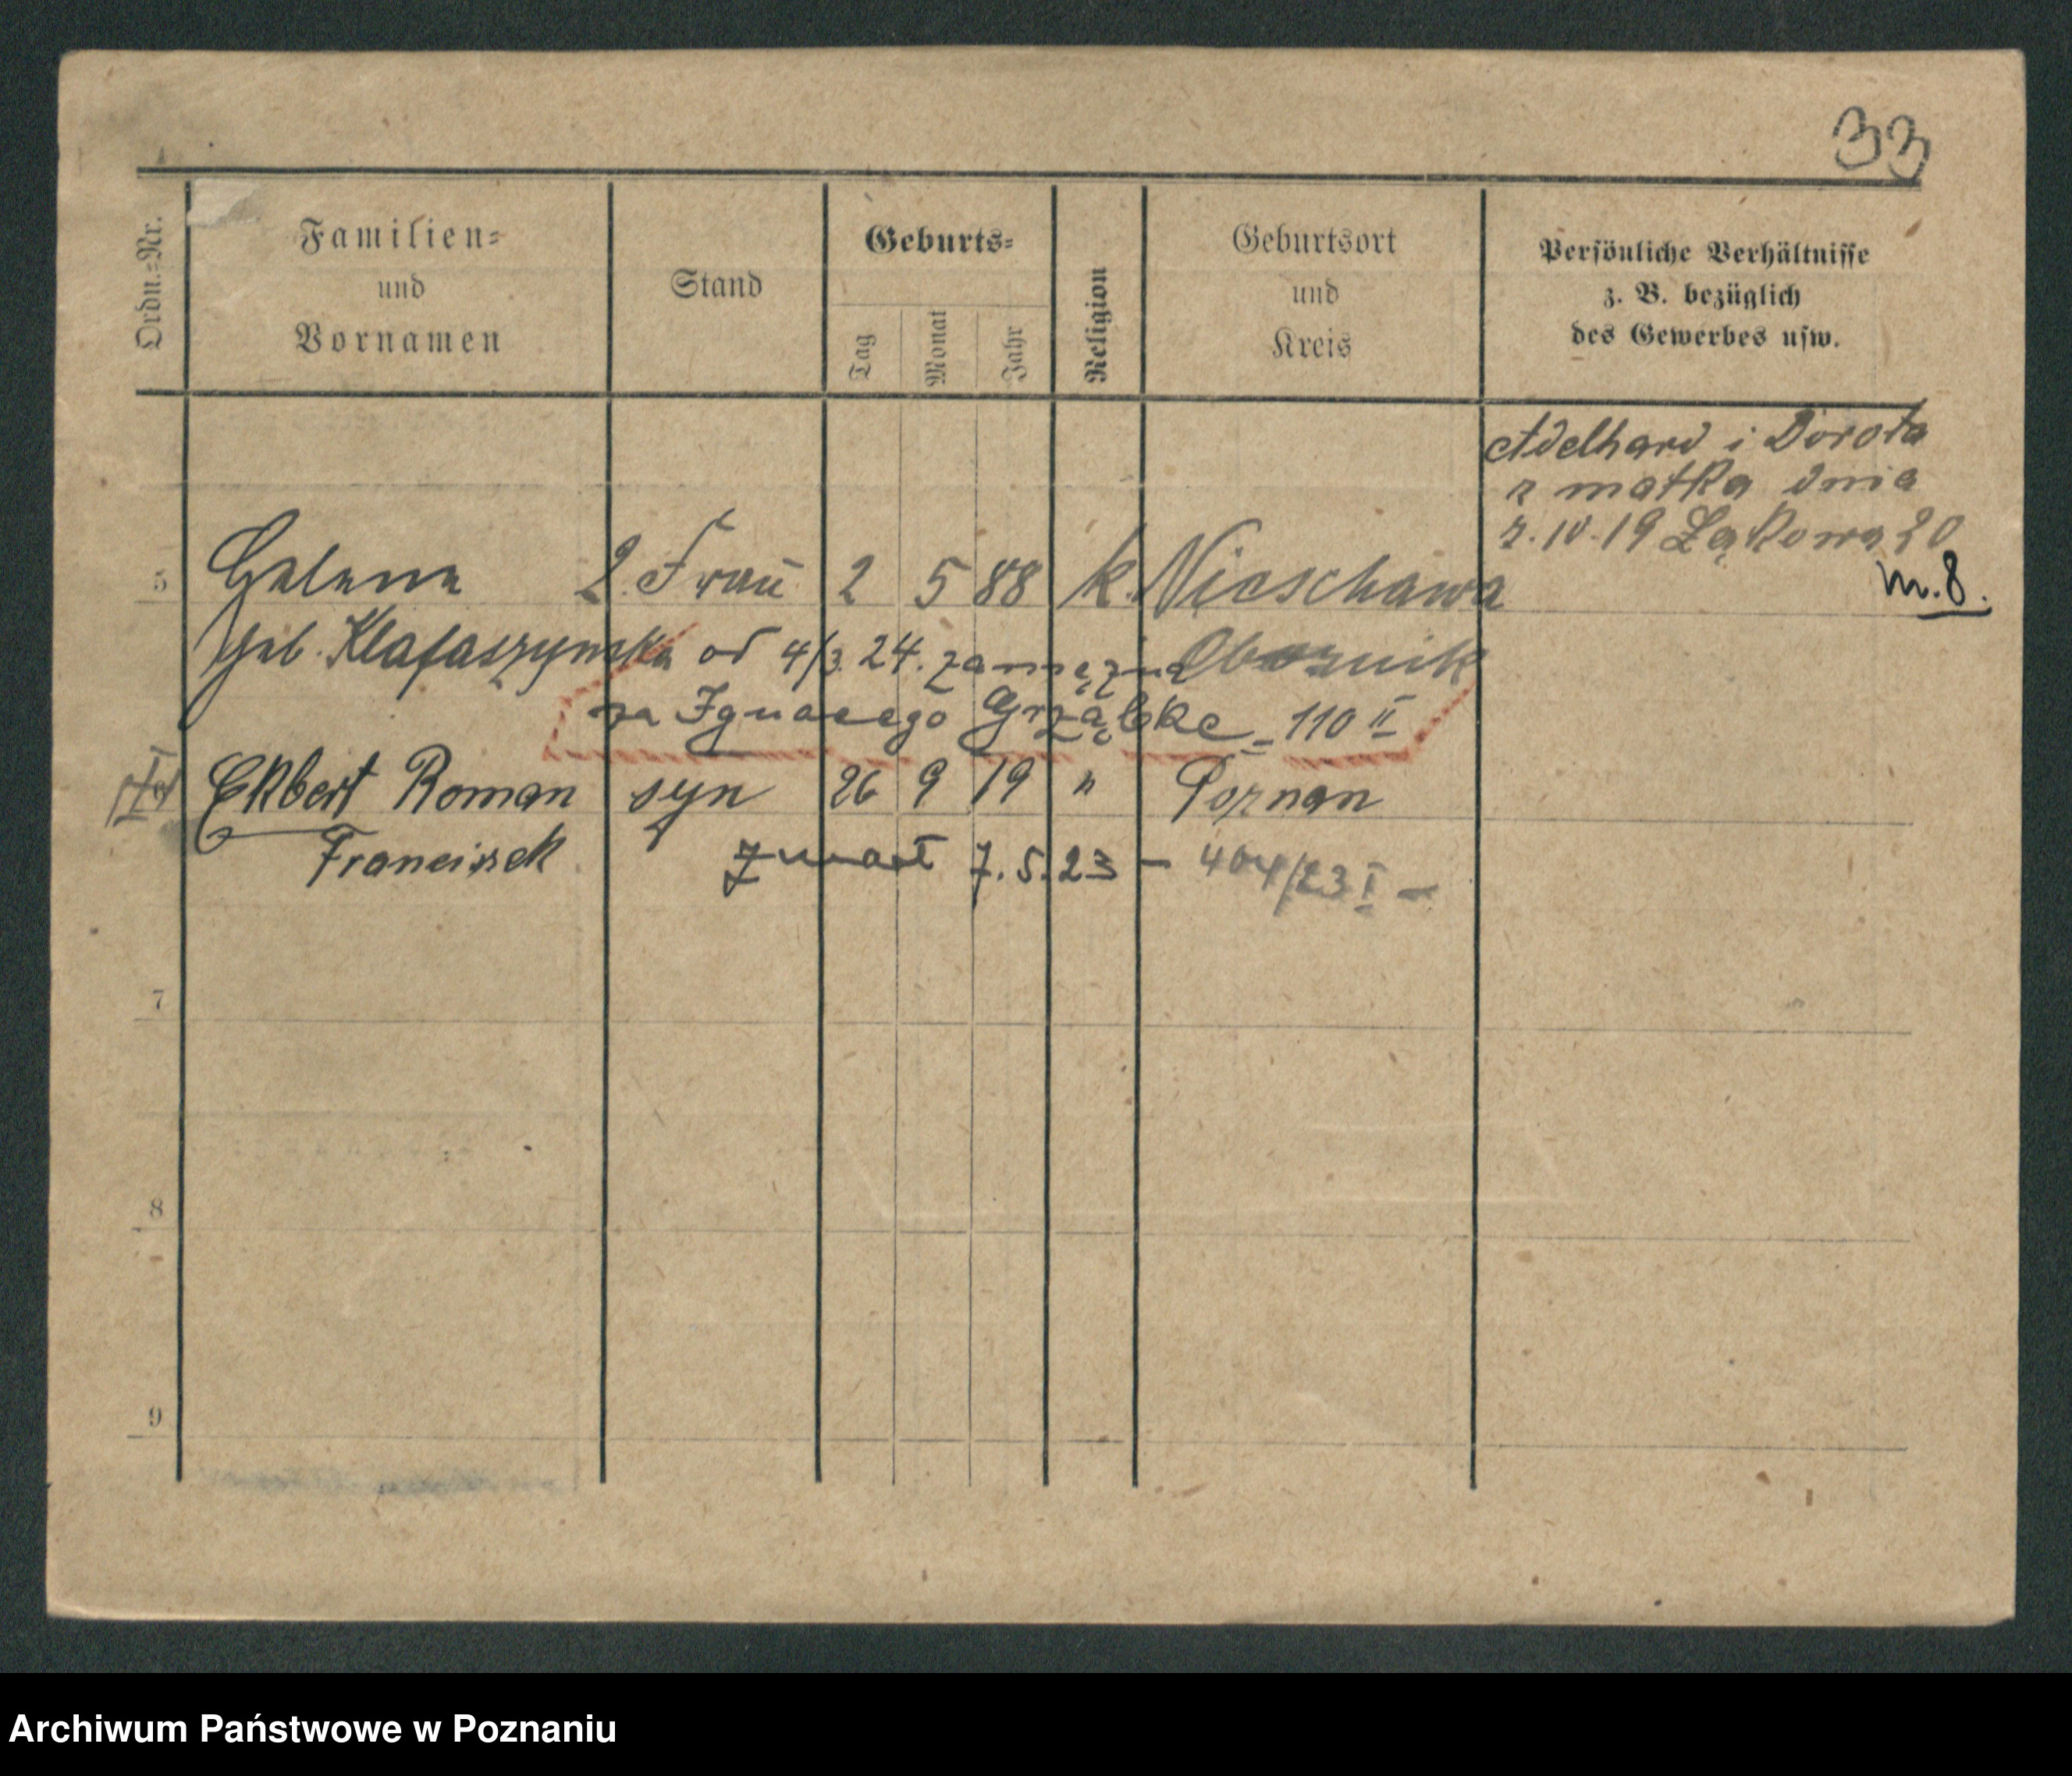 33
Ordn.-Nr.
Familien-
und
Vornamen
Stand
Geburts-
Tag
Monat
Jahr
Religion
Geburtsort
und
Kreis
Persönliche Verhältnisse
z. B. bezüglich
des Gewerbes usw.
Adelhard i Dorota
z matką dnia
IV. 19 Łąkowa 20
m. 8.
5 Helene 2. Frau 2 5 88 k. Nieschawa
geb. Klafaszynska od 4/3. 24. zamężna Obornik
za Ignacego Grząbkę - 110 II
Ekbert Roman syn 26 9 19 " Poznan
Franciszek zmarł 7.5.23 - 404/23 I -
7
8
9
Archiwum Państwowe w Poznaniu